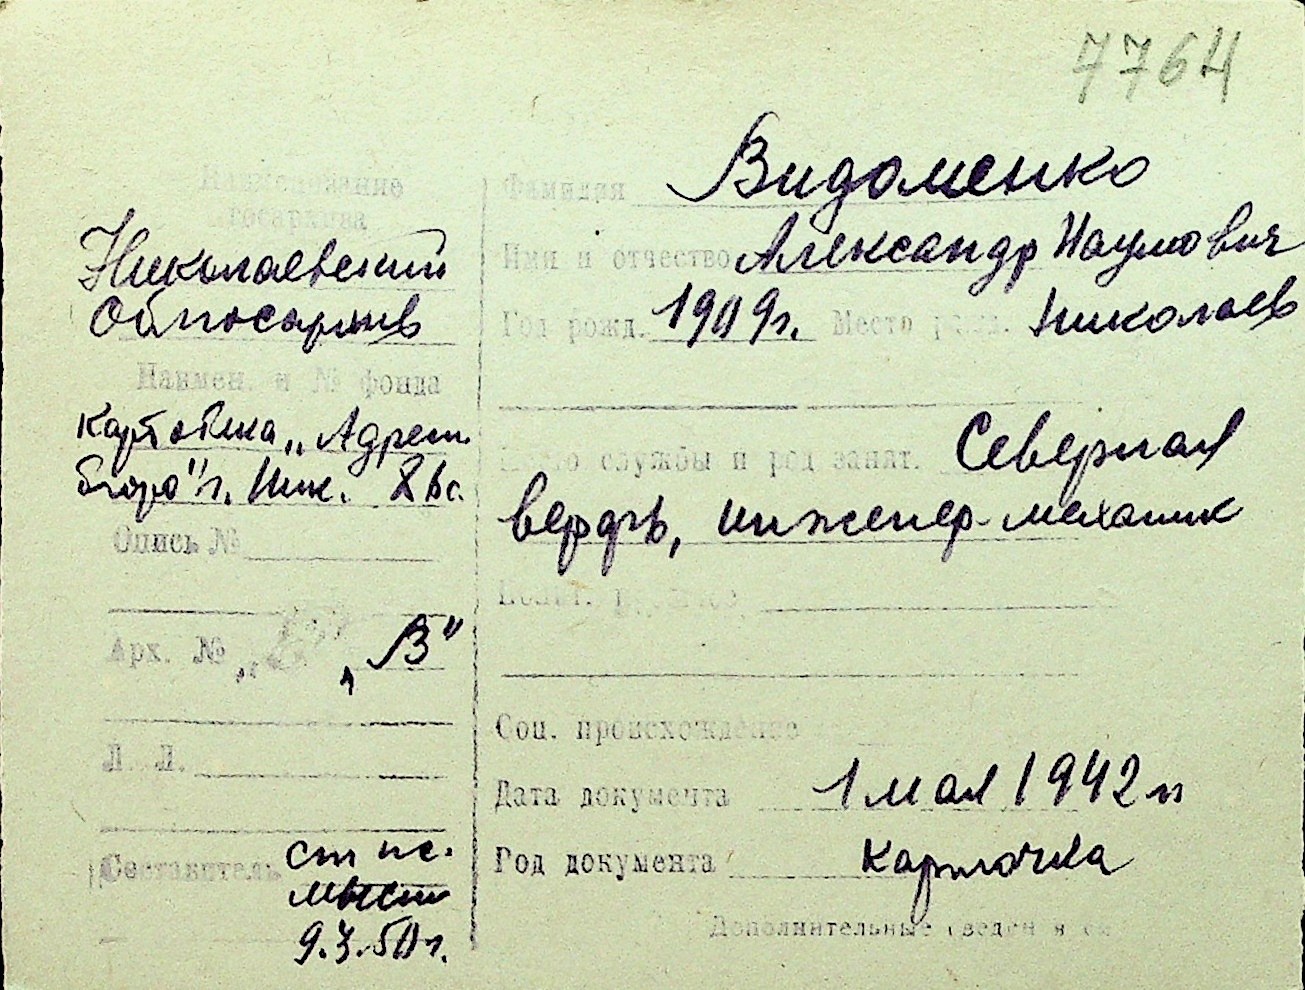 7764
Наименование
госархива
Николаевский
Облгосархив
Наимен. и № фонда
Картотека „Адресн.
бюро" г. Ник.
Опись №
Арх. № „В"
Л. Л.
Составитель ст
9.3.50 г.
Фамилия Видоменко
Имя и отчество Александр Наумович
Год рожд. 1909 г. Место рожд. Николаев
Место службы и род занят. Северная
верфь, инженер-механик
Соц. происхождение
Дата документа 1 мая 1942 г
Род документа карточка
Дополнительные сведения